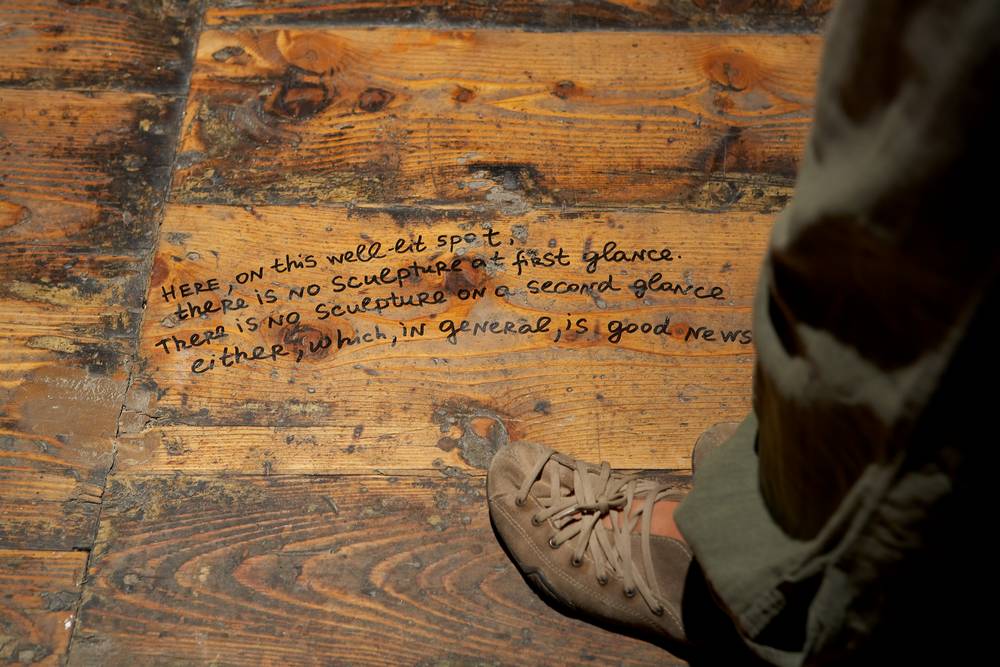 HERE, ON this well-lit spot,
there IS NO Sculpture at first glance.
There IS NO Sculpture ON a second glance
either, which, in general, is good News